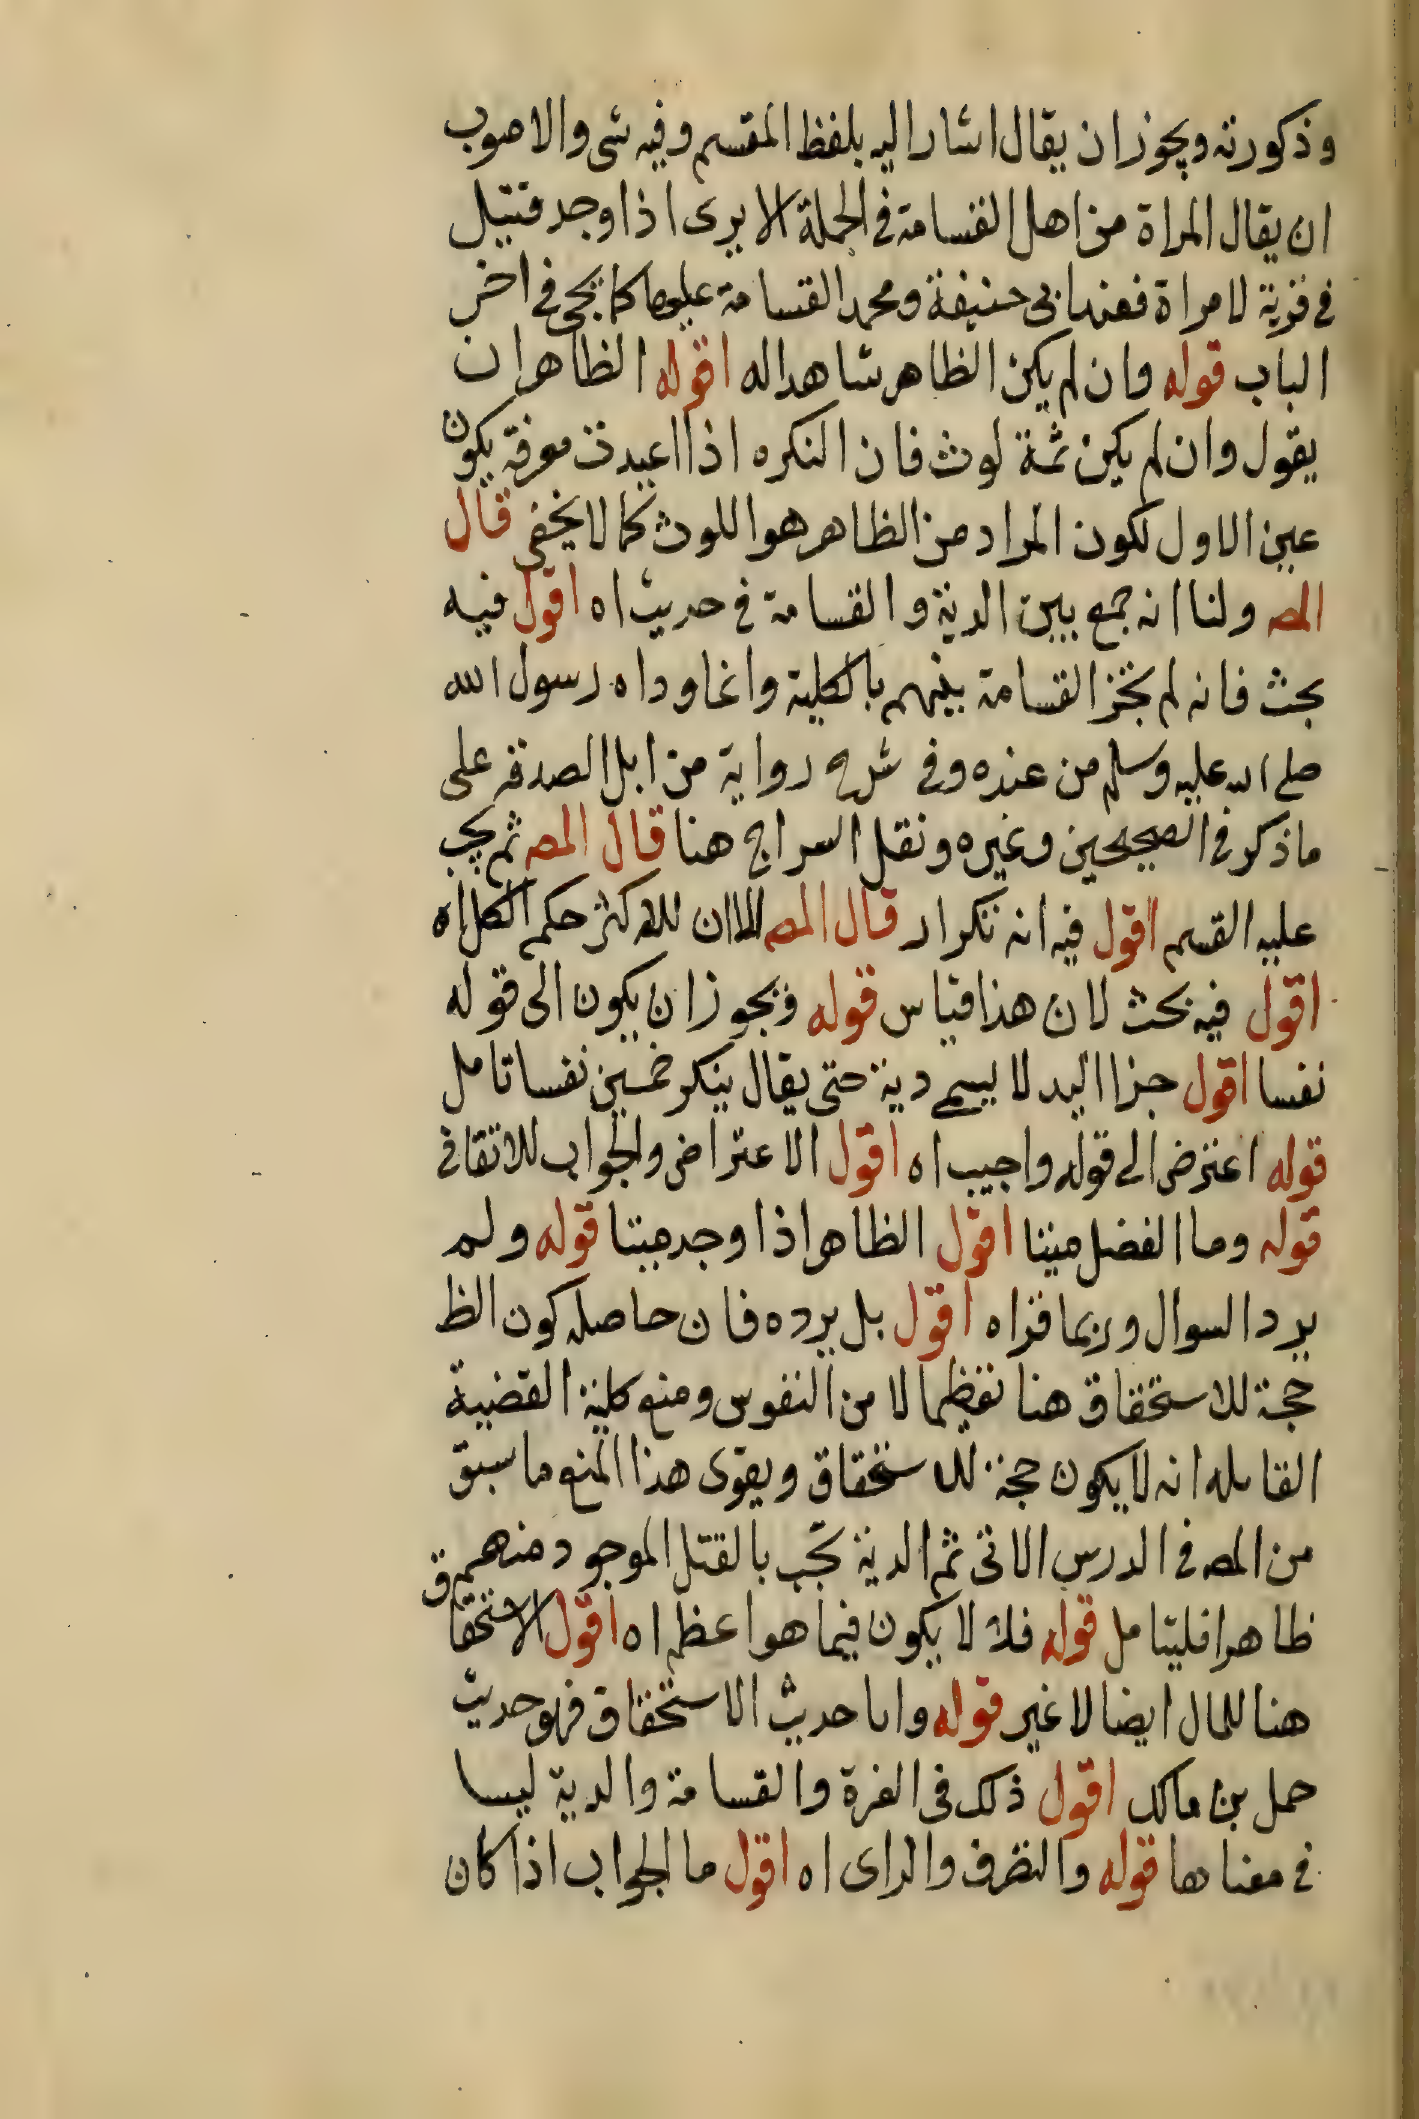 وذكورته ويجوز ان يقال اشار اليه بلفظ المقسم وفيه شى والاصوب
ان يقال المراة من اهل القسامة فى الجملة الا يرى اذا وجد قتيل
فى قرية لامراة فعند ابى حنيفة ومحمد القسامة عليها كما يجى فى اخر
الباب قوله وان لم يكن الظاهر شاهدا له اقوله الظاهر ان
يقول وان لم يكن ثمة لوث فان النكره اذا اعيدت معرفة يكون
عين الاول لكون المراد من الظاهر هو اللوث كما لا يخفى قال
المص ولنا انه جمع بين الدية والقسامة فى حديث اه اقول فيه
بحث فانه لم تجز القسامة بينهم بالكلية وانما وداه رسول الله
صلى الله عليه وسلم من عنده وفى رواية من ابل الصدقة على
ما ذكر فى الصحيحين وغيره ونقل السراج هنا قال المص ثم يجب
عليه القسم اقول فيه انه تكرار قال المص لما ان للاكثر حكم الكل اه
اقول فيه بحث لان هذا قياس قوله ويجوز ان يكون الى قوله
نفسا اقول جزا اليد لا يسمى دية حتى يقال ينكر خمسين نفسا تامل
قوله اعترض الى قوله واجيب اه اقول الاعتراض والجواب للاتقانى
قوله وما انفصل ميتا اقول الظاهر اذا وجد ميتا قوله ولم
يرد السوال وربما قراه اقول بل يرده فان حاصله كون الظ
حجة للاستحقاق هنا تعظيما لامر النفوس ومنع كلية القضية
القايله انه لا يكون حجة للاستحقاق ويقوى هذا المنع ما سبق
من المص فى الدرس الاتى ثم الدية تجب بالقتل الموجود منهم
ظاهرا فليتامل قوله فلان لا يكون فيما هو اعظم اه اقول الاستحقاق
هنا للمال ايضا لا غير قوله واما حديث الاستحقاق فهو حديث
حمل بن مالك اقول ذلك فى الغرة والقسامة والدية ليسا
فى معناها قوله والتصرف والراى اه اقول ما الجواب اذا كان